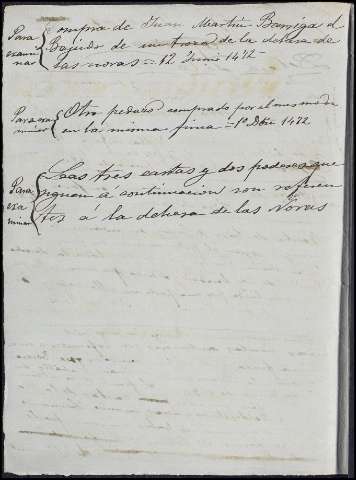 Para
exami
nar
Compra de Juan Martin Barriga el
Bajido de un troso de la dehesa de
las novas = 12 Junio 1472 -
Para exa
minar
Otro pedazo comprado por el mesmo
en la misma finca = 1º Dbre 1472
Para
exa
minar
Las tres cartas y dos poderes que
siguen á continuacion son referen
tes á la dehesa de las Novas